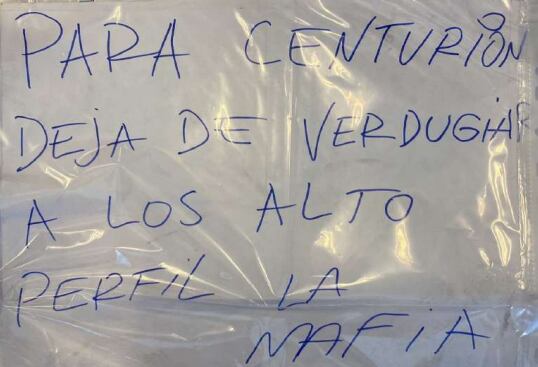 PARA CENTURIÓN
DEJA DE VERDUGIAR
A LOS ALTO
PERFIL LA
MAFIA